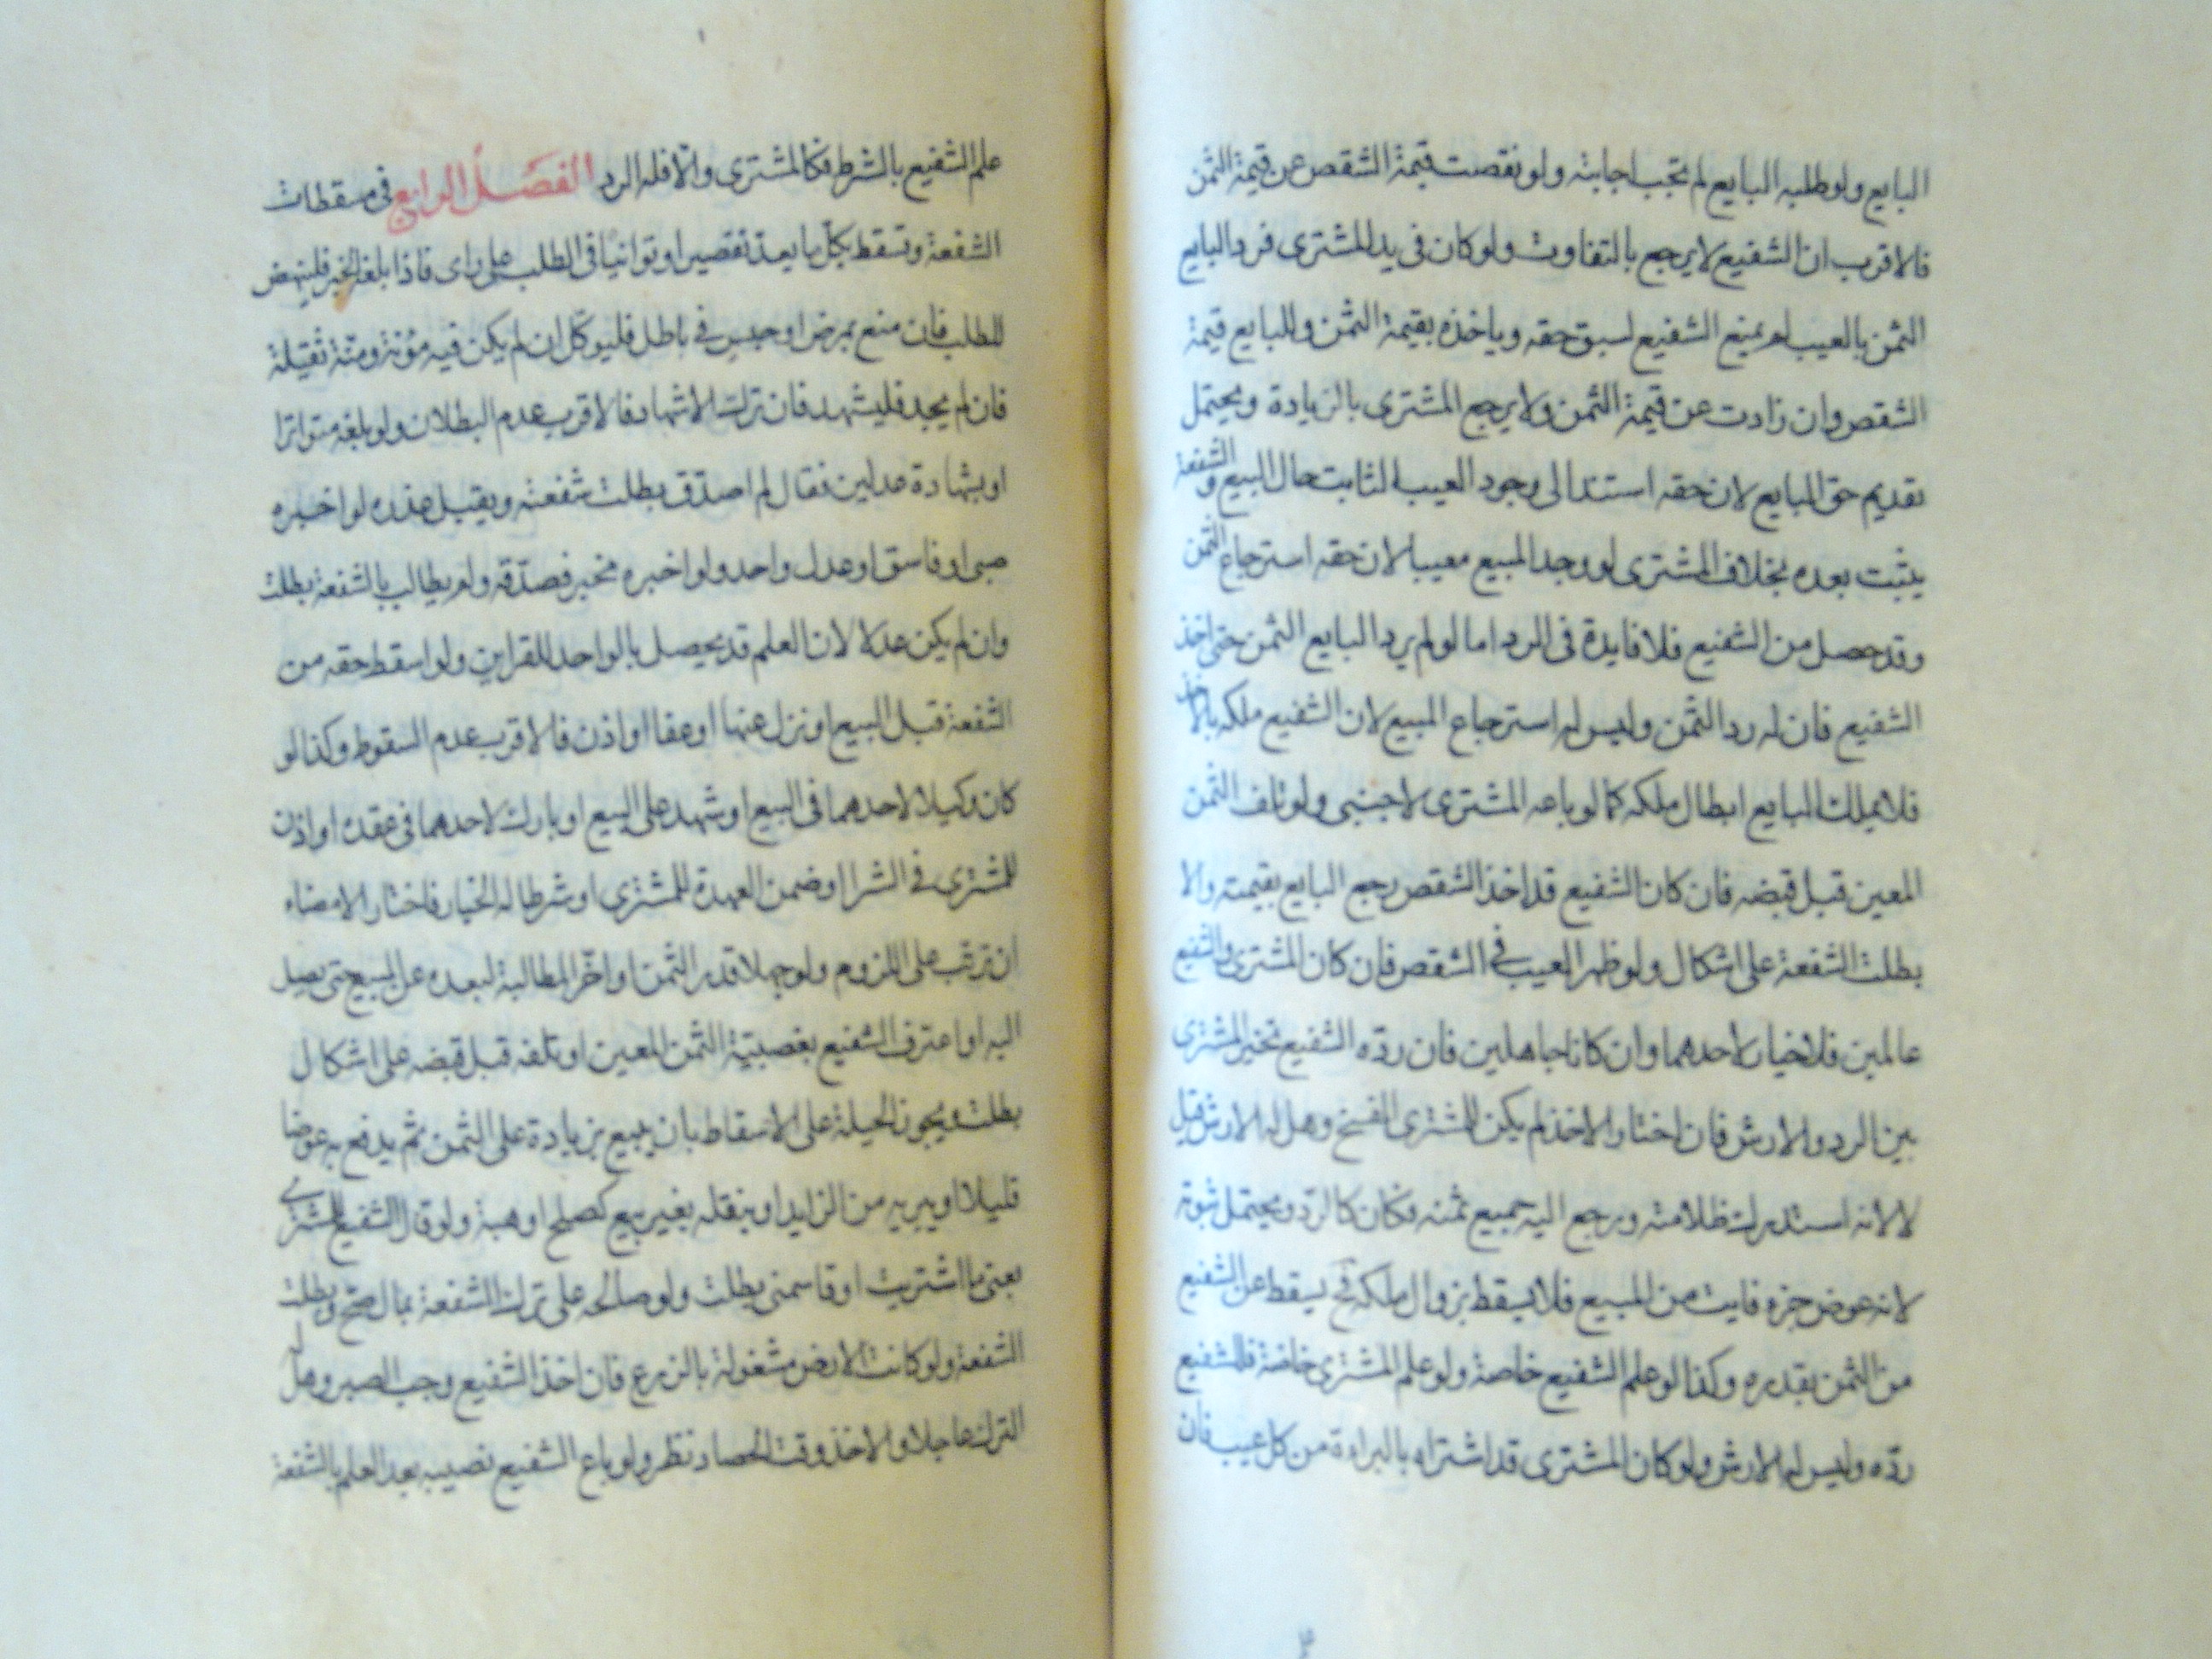 البايع ولو طلبه البايع لم تجب اجابته ولو نقصت قيمة الشقص عن قيمة الثمن
فالاقرب ان الشفيع لا يرجع بالتفاوت ولو كان في يد المشترى فرد البايع
الثمن بالعيب لم يمنع الشفيع لسبق حقه وياخذه بقيمة الثمن وللبايع قيمة
الشقص وان زادت عن قيمة الثمن ولا يرجع المشترى بالزيادة ويحتمل
تقديم حق البايع لان حقه استند الى وجود العيب الثابت حال البيع والشفعة
يثبت بعده بخلاف المشترى لو وجد المبيع معيبا لان حقه استرجاع الثمن
وقد حصل من الشفيع فلا فايدة في الرد اما لو لم يرد البايع الثمن حتى اخذ
الشفيع فان له رد الثمن وليس له استرجاع المبيع لان الشفيع ملكه بالاخذ
فلا يملك البايع ابطال ملكه كما لو باعه المشترى لاجنبى ولو تلف الثمن
المعين قبل قبضه فان كان الشفيع قد اخذ الشقص رجع البايع بقيمته والا
بطلت الشفعة على اشكال ولو ظهر العيب في الشقص فان كان المشترى والشفيع
عالمين فلا خيار لاحدهما وان كانا جاهلين فان ردّه الشفيع تخير المشترى
بين الرد والارش فان اختار الاخذ لم يكن للمشترى الفسخ وهل له الارش قيل
لا لانه استدرك ظلامته ورجع اليه جميع ثمنه فكان كالردّ ويحتمل ثبوته
لانه عوض جزء فايت من المبيع فلا يسقط بزوال ملكه فح يسقط عن الشفيع
من الثمن بقدره وكذا لو علم الشفيع خاصة ولو علم المشترى خاصة فللشفيع
ردّه وليس له الارش ولو كان المشترى قد اشتراه بالبراءة من كل عيب فان
علم الشفيع بالشرط فكالمشترى والّا فله الرد الفصل الرابع في مسقطات
الشفعة وتسقط بكلّ ما يعدّ تقصيرا او توانيا في الطلب على راى فاذا بلغه الخبر فلينهض
للطلب فان منع بمرض او حبس في باطل فليوكّل ان لم يكن فيه مؤنة ومنّة ثقيلة
فان لم يجد فليشهد فان ترك الاشهاد فالاقرب عدم البطلان ولو بلغه متواترا
او بشهادة عدلين فقال لم اصدّق بطلت شفعته ويقبل عذره لو اخبره
صبى او فاسق او عدل واحد ولو اخبره مخبر فصدّقه ولم يطالب بالشفعة بطلت
وان لم يكن عدلا لان العلم قد يحصل بالواحد للقراين ولو اسقط حقه من
الشفعة قبل البيع او نزل عنها او عفا او اذن فالاقرب عدم السقوط وكذا لو
كان وكيلا لاحدهما في البيع او شهد على البيع او بارك لاحدهما في عقده او اذن
للمشترى في الشرا او ضمن العهدة للمشترى او شرطا له الخيار فاختار الامضاء
ان ترتب على اللزوم ولو جهلا قدر الثمن او اخّر المطالبة لبعده عن المبيع حتى يصل
اليه او اعترف الشفيع بغصبيّة الثمن المعين او تلفه قبل قبضه على اشكال
بطلت ويجوز الحيلة على الاسقاط بان يبيع بزيادة على الثمن ثم يدفع به عوضا
قليلا او يبريه من الزايد او ينقله بغير بيع كصلح او هبة ولو قال الشفيع للمشترى
بعنى ما اشتريت او قاسمنى بطلت ولو صالحه على ترك الشفعة بمال صحّ وبطلت
الشفعة ولو كانت الارض مشغولة بالزرع فان اخذ الشفيع وجب الصبر وهل له
الترك عاجلا والاخذ وقت الحصاد نظر ولو باع الشفيع نصيبه بعد العلم بالشفعة